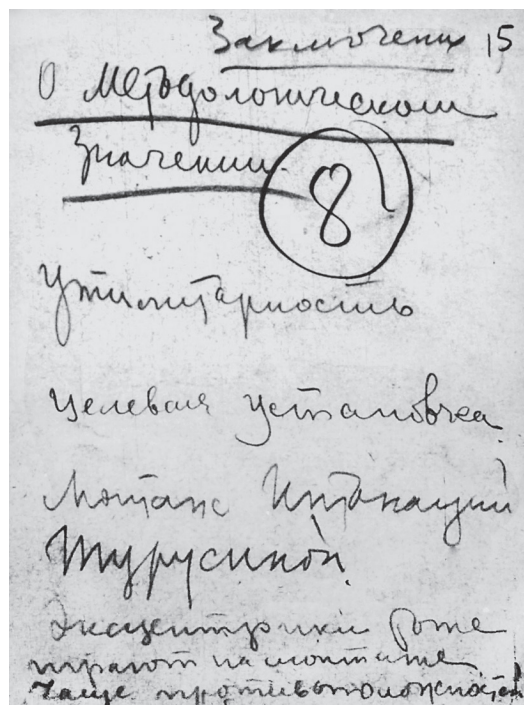 Заключение 15
О методологическом
значении.
8
Утилитарность
Целевая установка
Монтаж Интонаций
Турусиной.
Эксцентрики тоже
играют на монтаже
Чаще противоположностей